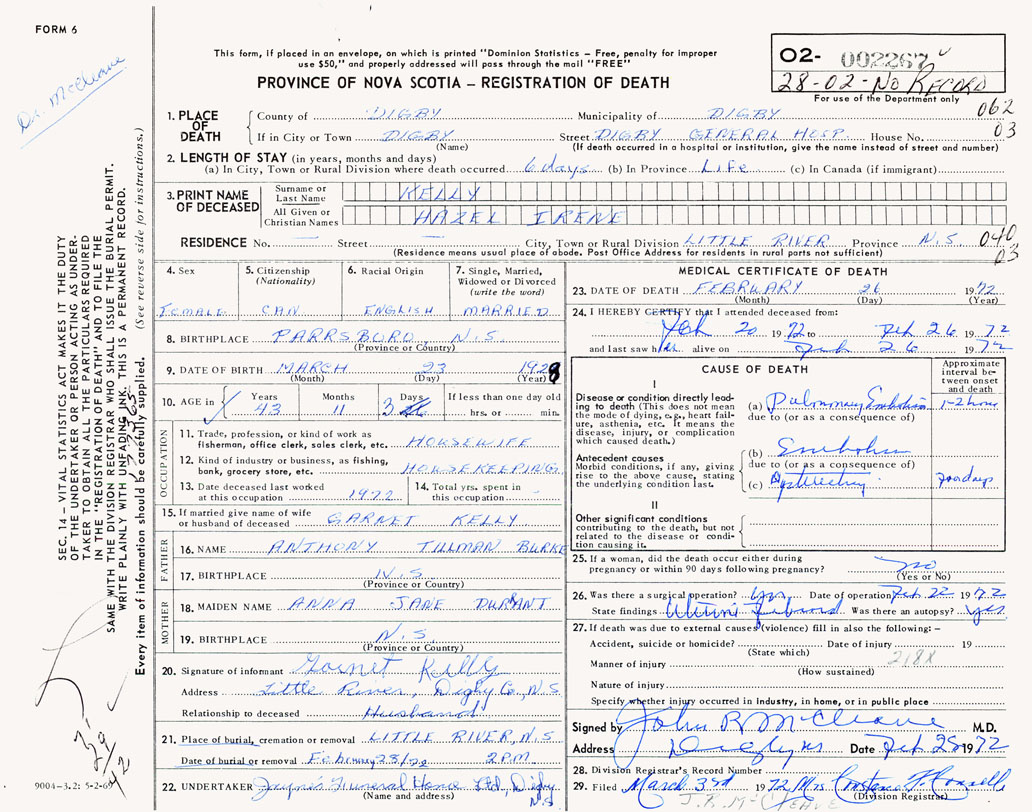 FORM 6
Dr. McCleave
This form, if placed in an envelope, on which is printed "Dominion Statistics – Free, penalty for improper
use $50," and properly addressed will pass through the mail "FREE"
PROVINCE OF NOVA SCOTIA – REGISTRATION OF DEATH
02- 002267
28-02-NO RECORD
For use of the Department only
062
03
1. PLACE OF DEATH
County of DIGBY Municipality of DIGBY
If in City or Town DIGBY Street DIGBY GENERAL HOSP. House No.
(Name) (If death occurred in a hospital or institution, give the name instead of street and number)
2. LENGTH OF STAY (in years, months and days)
(a) In City, Town or Rural Division where death occurred 6 days (b) In Province LIFE (c) In Canada (if immigrant)
3. PRINT NAME OF DECEASED
Surname or Last Name KELLY
All Given or Christian Names HAZEL IRENE
RESIDENCE No. — Street — City, Town or Rural Division LITTLE RIVER Province N.S. 040
03
(Residence means usual place of abode. Post Office Address for residents in rural parts not sufficient)
4. Sex FEMALE
5. Citizenship (Nationality) CAN
6. Racial Origin ENGLISH
7. Single, Married, Widowed or Divorced (write the word) MARRIED
8. BIRTHPLACE PARRSBORO, N.S.
(Province or Country)
9. DATE OF BIRTH MARCH 23 1928
(Month) (Day) (Year)
10. AGE in Years 43 Months 11 Days 3 If less than one day old hrs. or min.
OCCUPATION
11. Trade, profession, or kind of work as
fisherman, office clerk, sales clerk, etc. HOUSEWIFE
12. Kind of industry or business, as fishing,
bank, grocery store, etc. HOUSEKEEPING
13. Date deceased last worked
at this occupation 1972
14. Total yrs. spent in
this occupation -
15. If married give name of wife
or husband of deceased GARNET KELLY
FATHER
16. NAME ANTHONY TILLMAN BURKE
17. BIRTHPLACE N.S.
(Province or Country)
MOTHER
18. MAIDEN NAME ANNA JANE DURANT
19. BIRTHPLACE N.S.
(Province or Country)
20. Signature of informant Garnet Kelly
Address Little River, Digby Co., N.S.
Relationship to deceased Husband
21. Place of burial, cremation or removal LITTLE RIVER, N.S.
Date of burial or removal February 28/72 2 PM
22. UNDERTAKER Jayne's Funeral Home Ltd, Digby
N.S.
(Name and address)
MEDICAL CERTIFICATE OF DEATH
23. DATE OF DEATH FEBRUARY 26 1972
(Month) (Day) (Year)
24. I HEREBY CERTIFY that I attended deceased from:
Feb 20 1972 to Feb 26 1972
and last saw her alive on Feb 26 1972
CAUSE OF DEATH
Approximate interval between onset and death
I
Disease or condition directly leading to death (This does not
the mode of dying, e.g., heart failure, asthenia, etc. It means the
disease, injury, or complication
which caused death.)
(a) Pulmonary Embolism 1-2 hours
due to (or as a consequence of)
Antecedent causes
Morbid conditions, if any, giving
rise to the above cause, stating
the underlying condition last.
(b) Embolism
due to (or as a consequence of)
(c)
II
Other significant conditions
contributing to the death, but not
related to the disease or condition causing it.
25. If a woman, did the death occur either during
pregnancy or within 90 days following pregnancy? no
(Yes or No)
26. Was there a surgical operation? Yes Date of operation Feb. 22 1972
State findings Uterine Fibroid Was there an autopsy? yes
27. If death was due to external causes (violence) fill in also the following: –
Accident, suicide or homicide? Date of injury 19
(State which)
218X
Manner of injury
(How sustained)
Nature of injury
Specify whether injury occurred in industry, in home, or in public place
Signed by John R McCleave M.D.
Address Digby NS Date Feb. 28 1972
28. Division Registrar's Record Number
29. Filed March 3rd 1972 Mrs Constance F.
(Division Registrar)
J.R. McCLEAVE
SEC. 14 – VITAL STATISTICS ACT MAKES IT THE DUTY
OF THE UNDERTAKER OR PERSON ACTING AS UNDER-
TAKER TO OBTAIN ALL THE PARTICULARS REQUIRED
IN THE "REGISTRATION OF DEATH" AND TO FILE THE
SAME WITH THE DIVISION REGISTRAR WHO SHALL ISSUE THE BURIAL PERMIT.
WRITE PLAINLY WITH UNFADING INK. THIS IS A PERMANENT RECORD.
Every item of information should be carefully supplied. (See reverse side for instructions.)
9004-3.2: 5-2-69